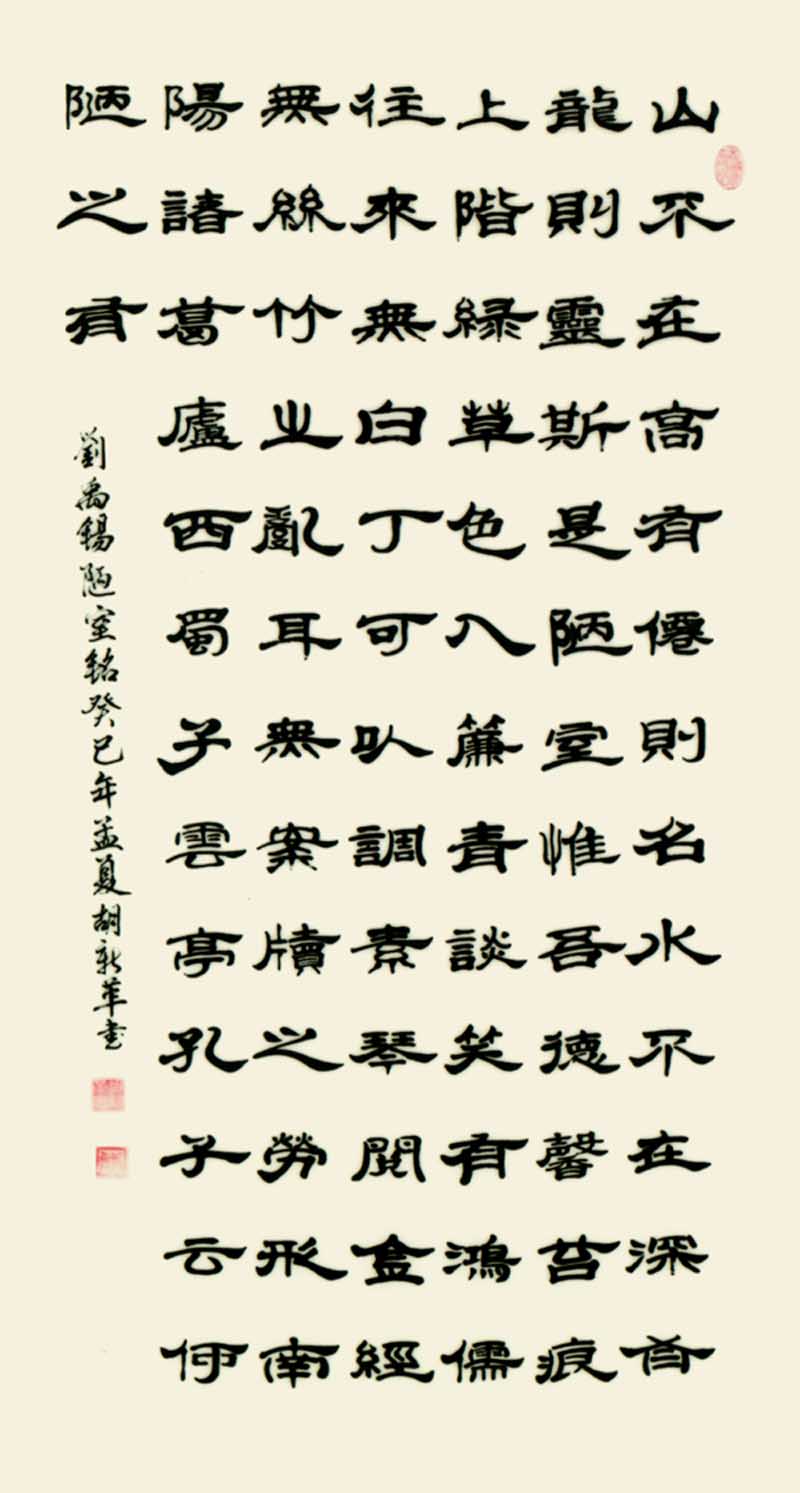 山不在高有僊則名水不在深有
龍則靈斯是陋室惟吾德馨苔痕
上階緑草色入簾青談笑有鴻儒
往來無白丁可以調素琴閱金經
無絲竹之亂耳無案牘之勞形南
陽諸葛廬西蜀子雲亭孔子云何
陋之有
劉禹錫陋室銘癸巳年孟夏胡新華書